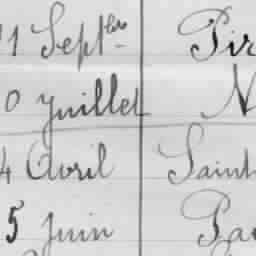 11 Septbre Pir
0 Juillet N
4 Avril Saint
5 Juin Pa